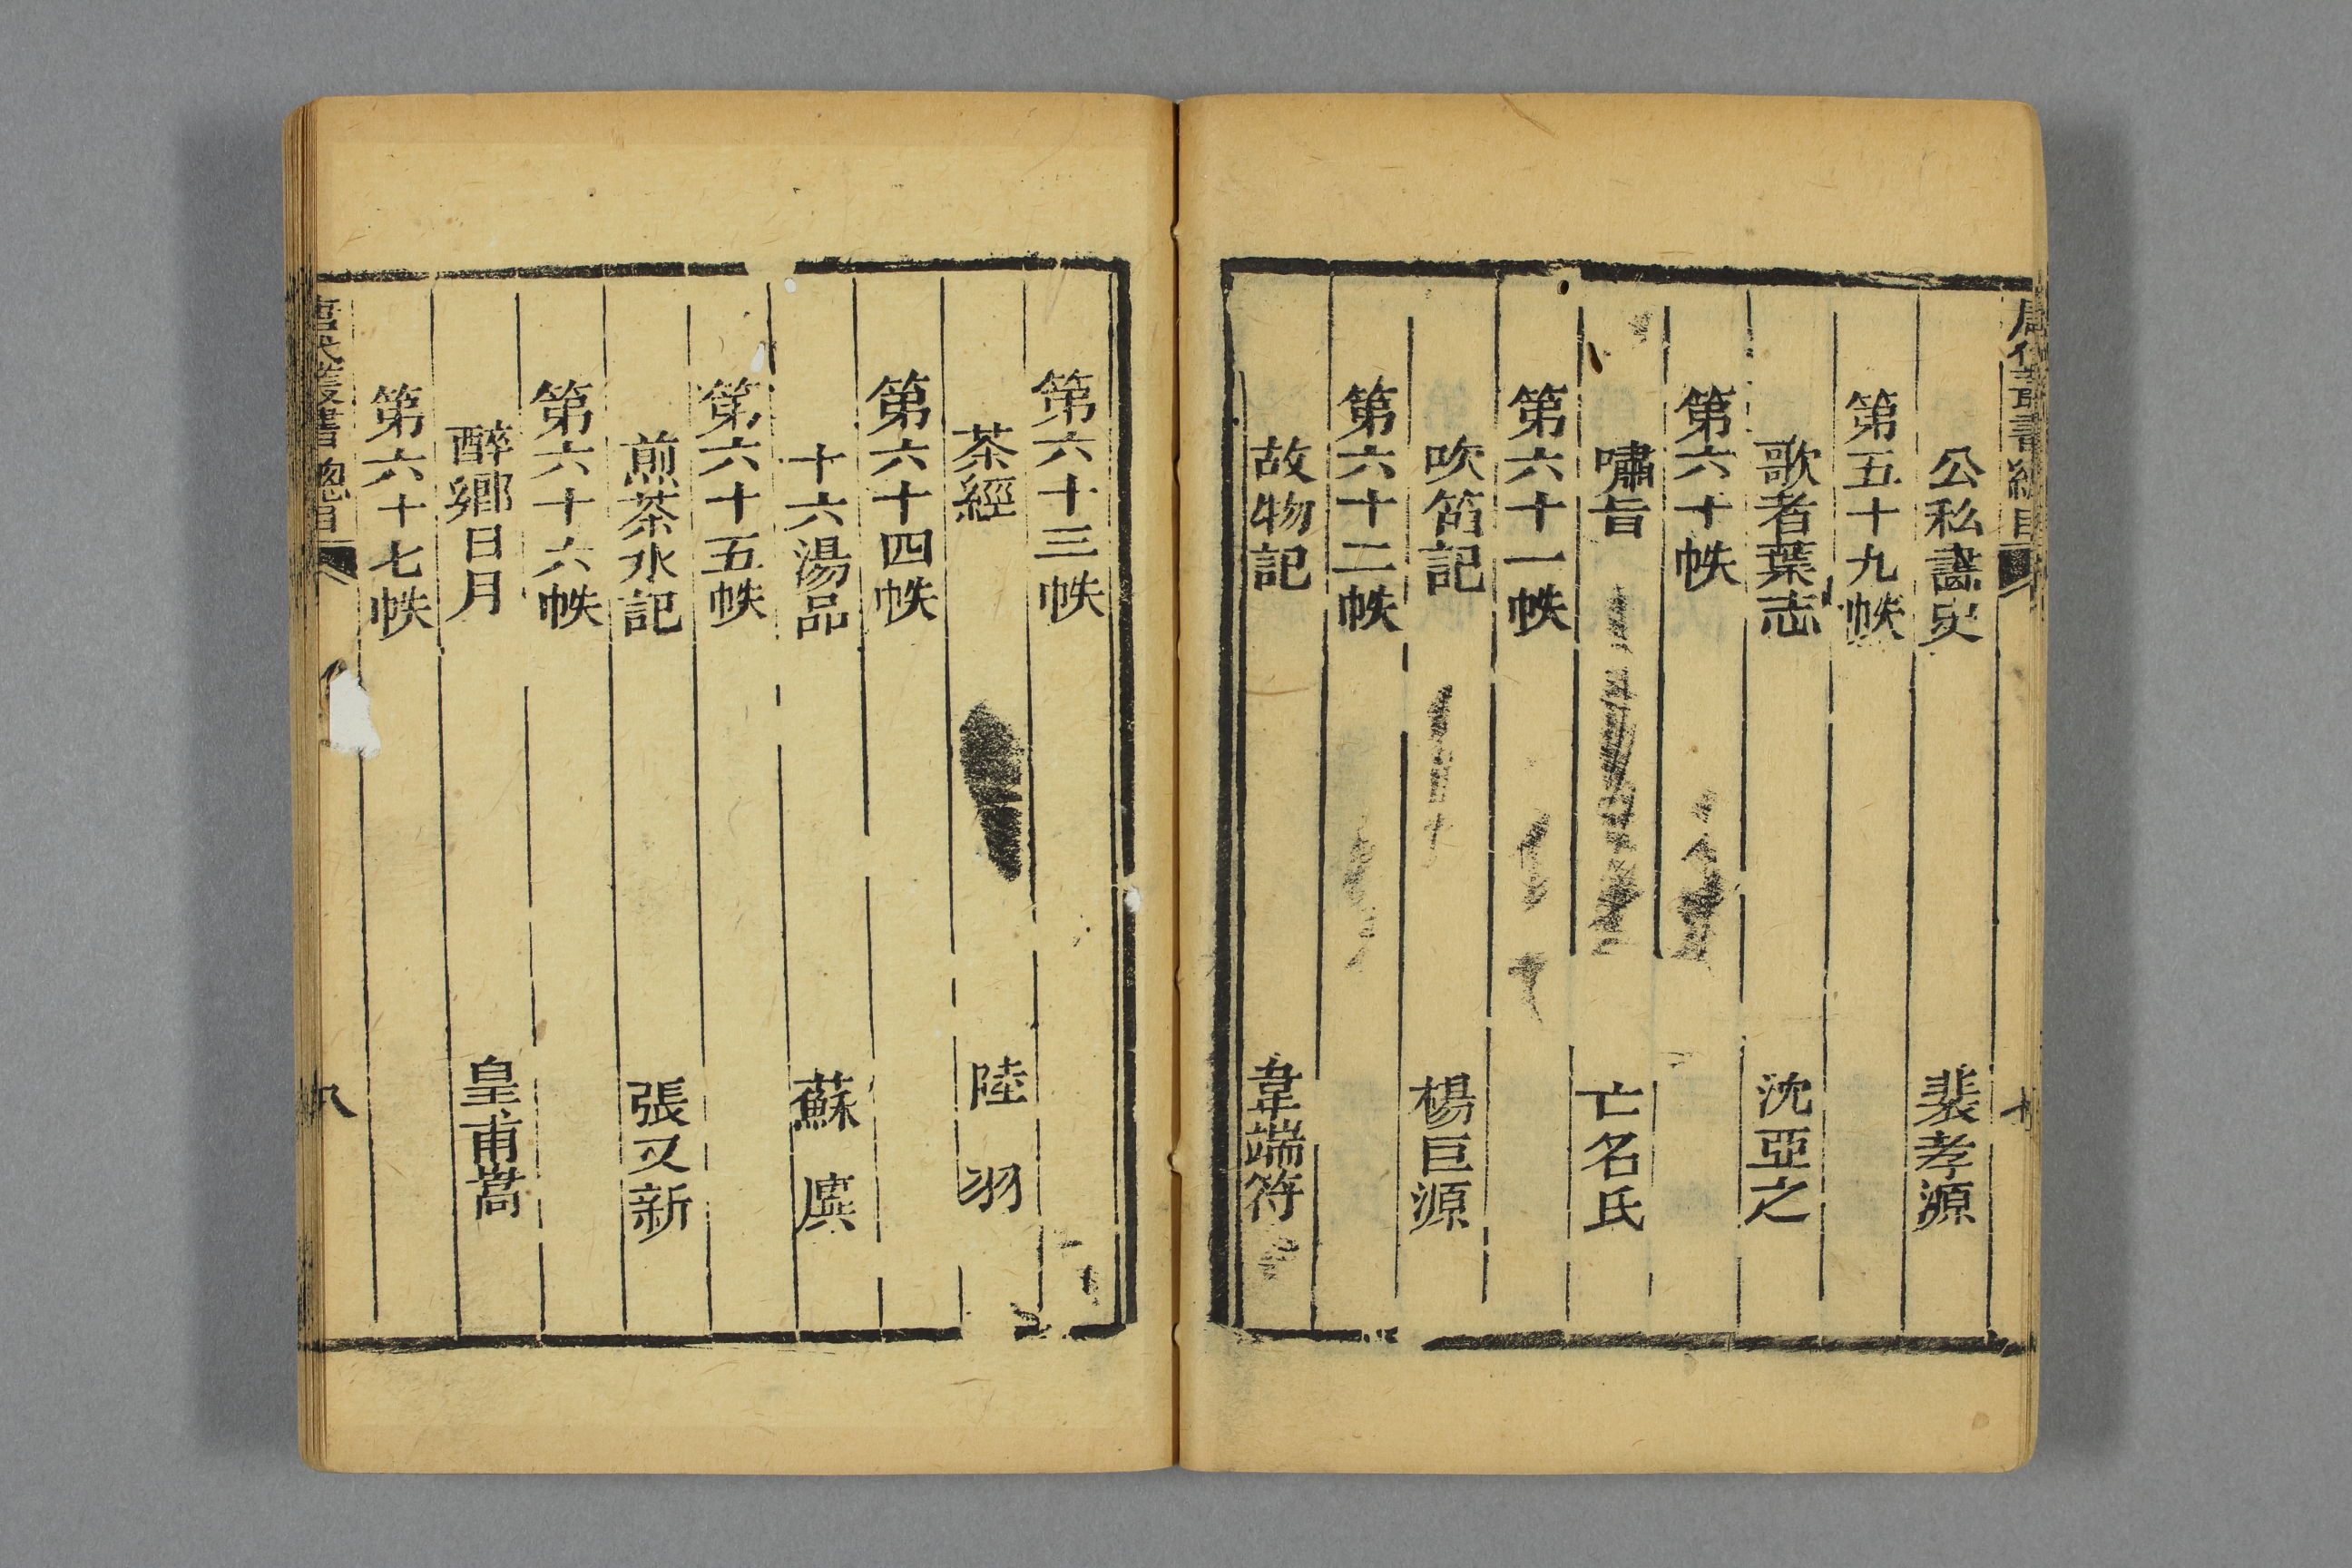 公私畵史　裴孝源
第五十九帙
歌者葉志　沈亞之
第六十帙
嘯旨　亡名氏
第六十一帙
吹笛記　楊巨源
第六十二帙
故物記　韋端符
第六十三帙
茶經　陸羽
第六十四帙
十六湯品　蘇廙
第六十五帙
煎茶水記　張又新
第六十六帙
醉鄉日月　皇甫嵩
第六十七帙
唐代叢書 總目